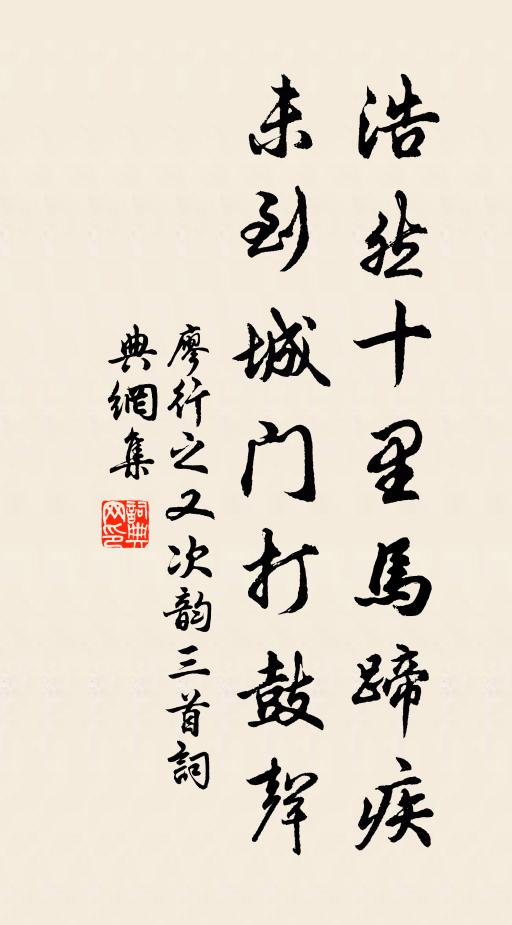 浩然十里馬蹄疾
未到城门打鼓聲
廖行之又次韵三首詞
典網集
詞典网印